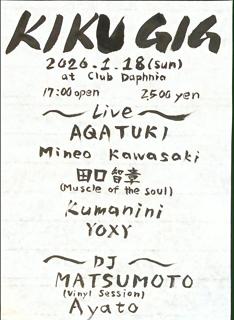 KIKU GIG
2026.1.18(sun)
at Club Daphnia
17:00 open 2,500 yen
〜Live〜
AQATUKI
Mineo Kawasaki
田口智章
(Muscle of the soul)
Kumanini
YOXY
〜DJ〜
MATSUMOTO
(Vinyl Session)
Ayato